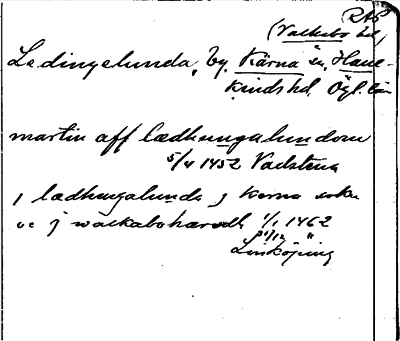 RAP
(Valkebo hd)
Ledingelunda, by, Kärna sn, Hane-
kinds hd, Ögl. län
martin aff lædhungalundom
5/4 1452 Vadstena
j lædhungalunda j kerna sokn
oc j walkaboharadh 1/1 1462
"
Linköping